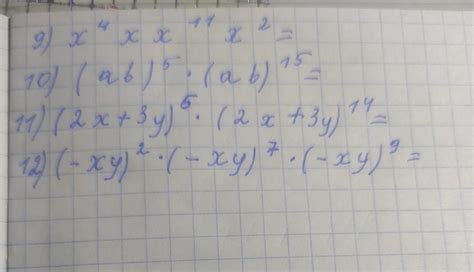 9) x⁴ x x¹¹ x² =
10) (ab)⁵ · (ab)¹⁵ =
11) (2x+3y)⁶ · (2x+3y)¹⁴ =
12) (-xy)² · (-xy)⁷ · (-xy)⁹ =